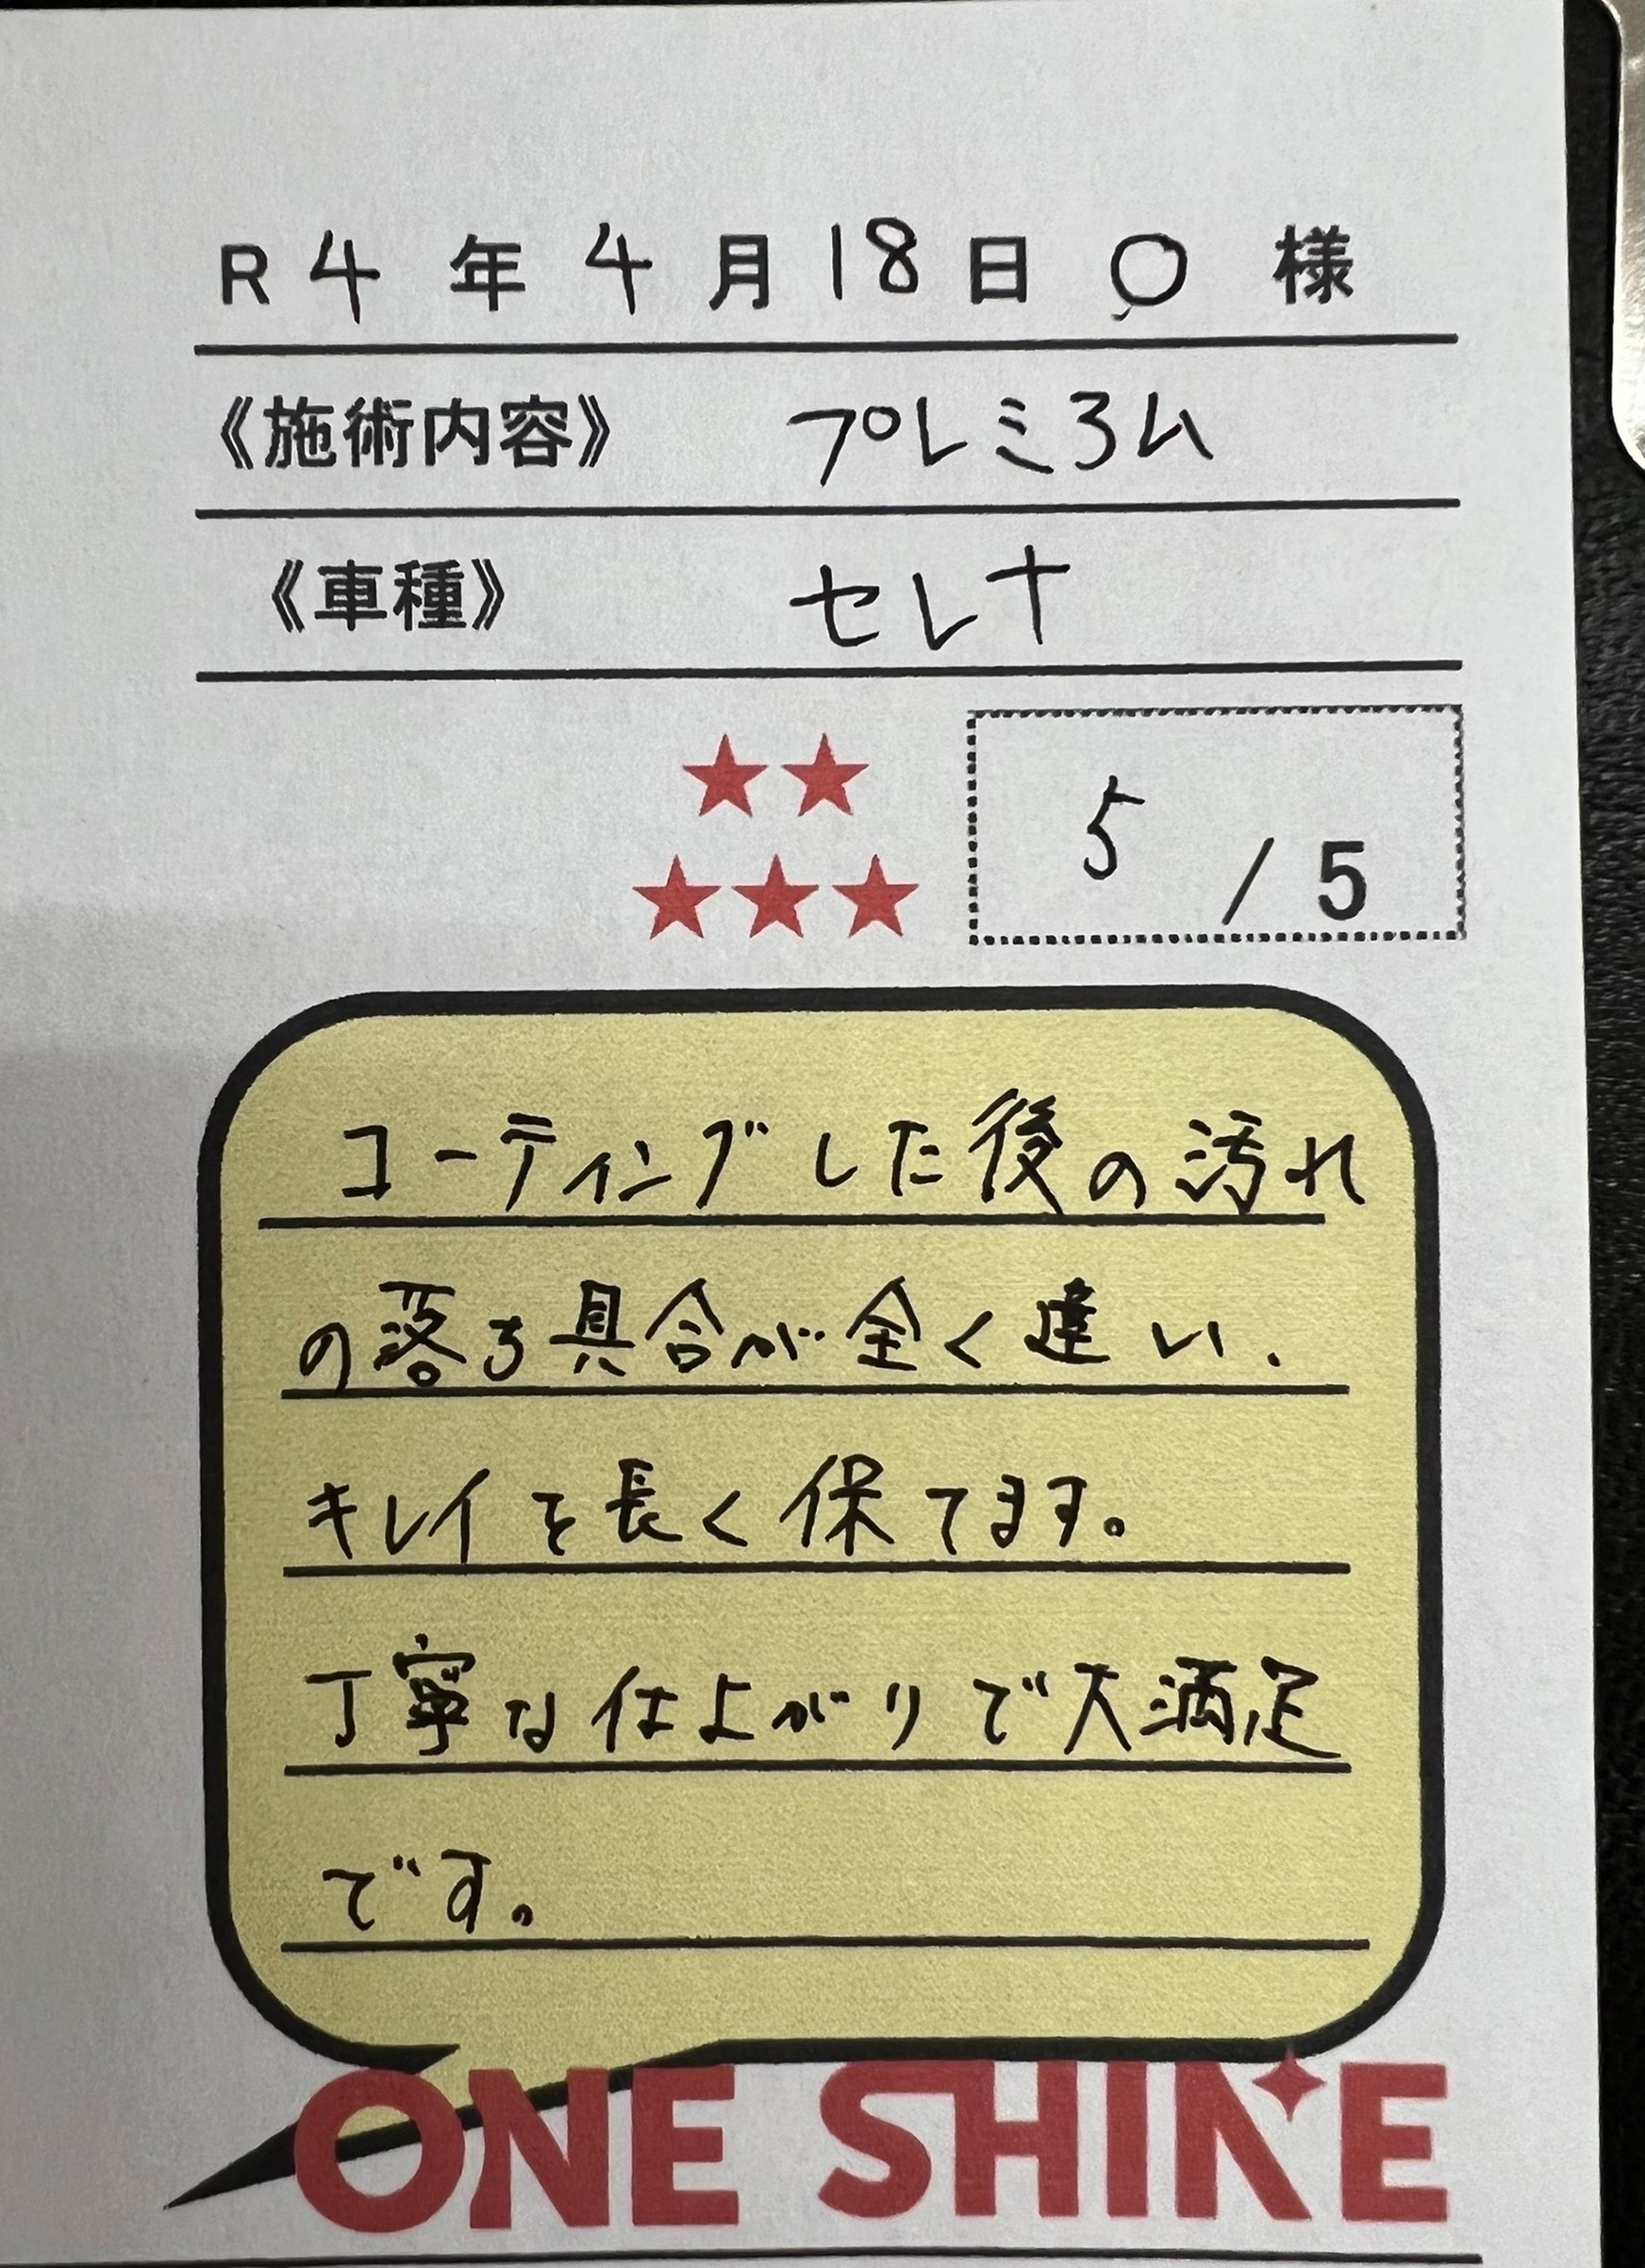 R4年4月18日 O 様
《施術内容》 プレミアム
《車種》 セレナ
★★
★★★
5/5
コーティングした後の汚れ
の落ち具合が全く違い、
キレイを長く保てます。
丁寧な仕上がりで大満足
です。
ONE SHINE